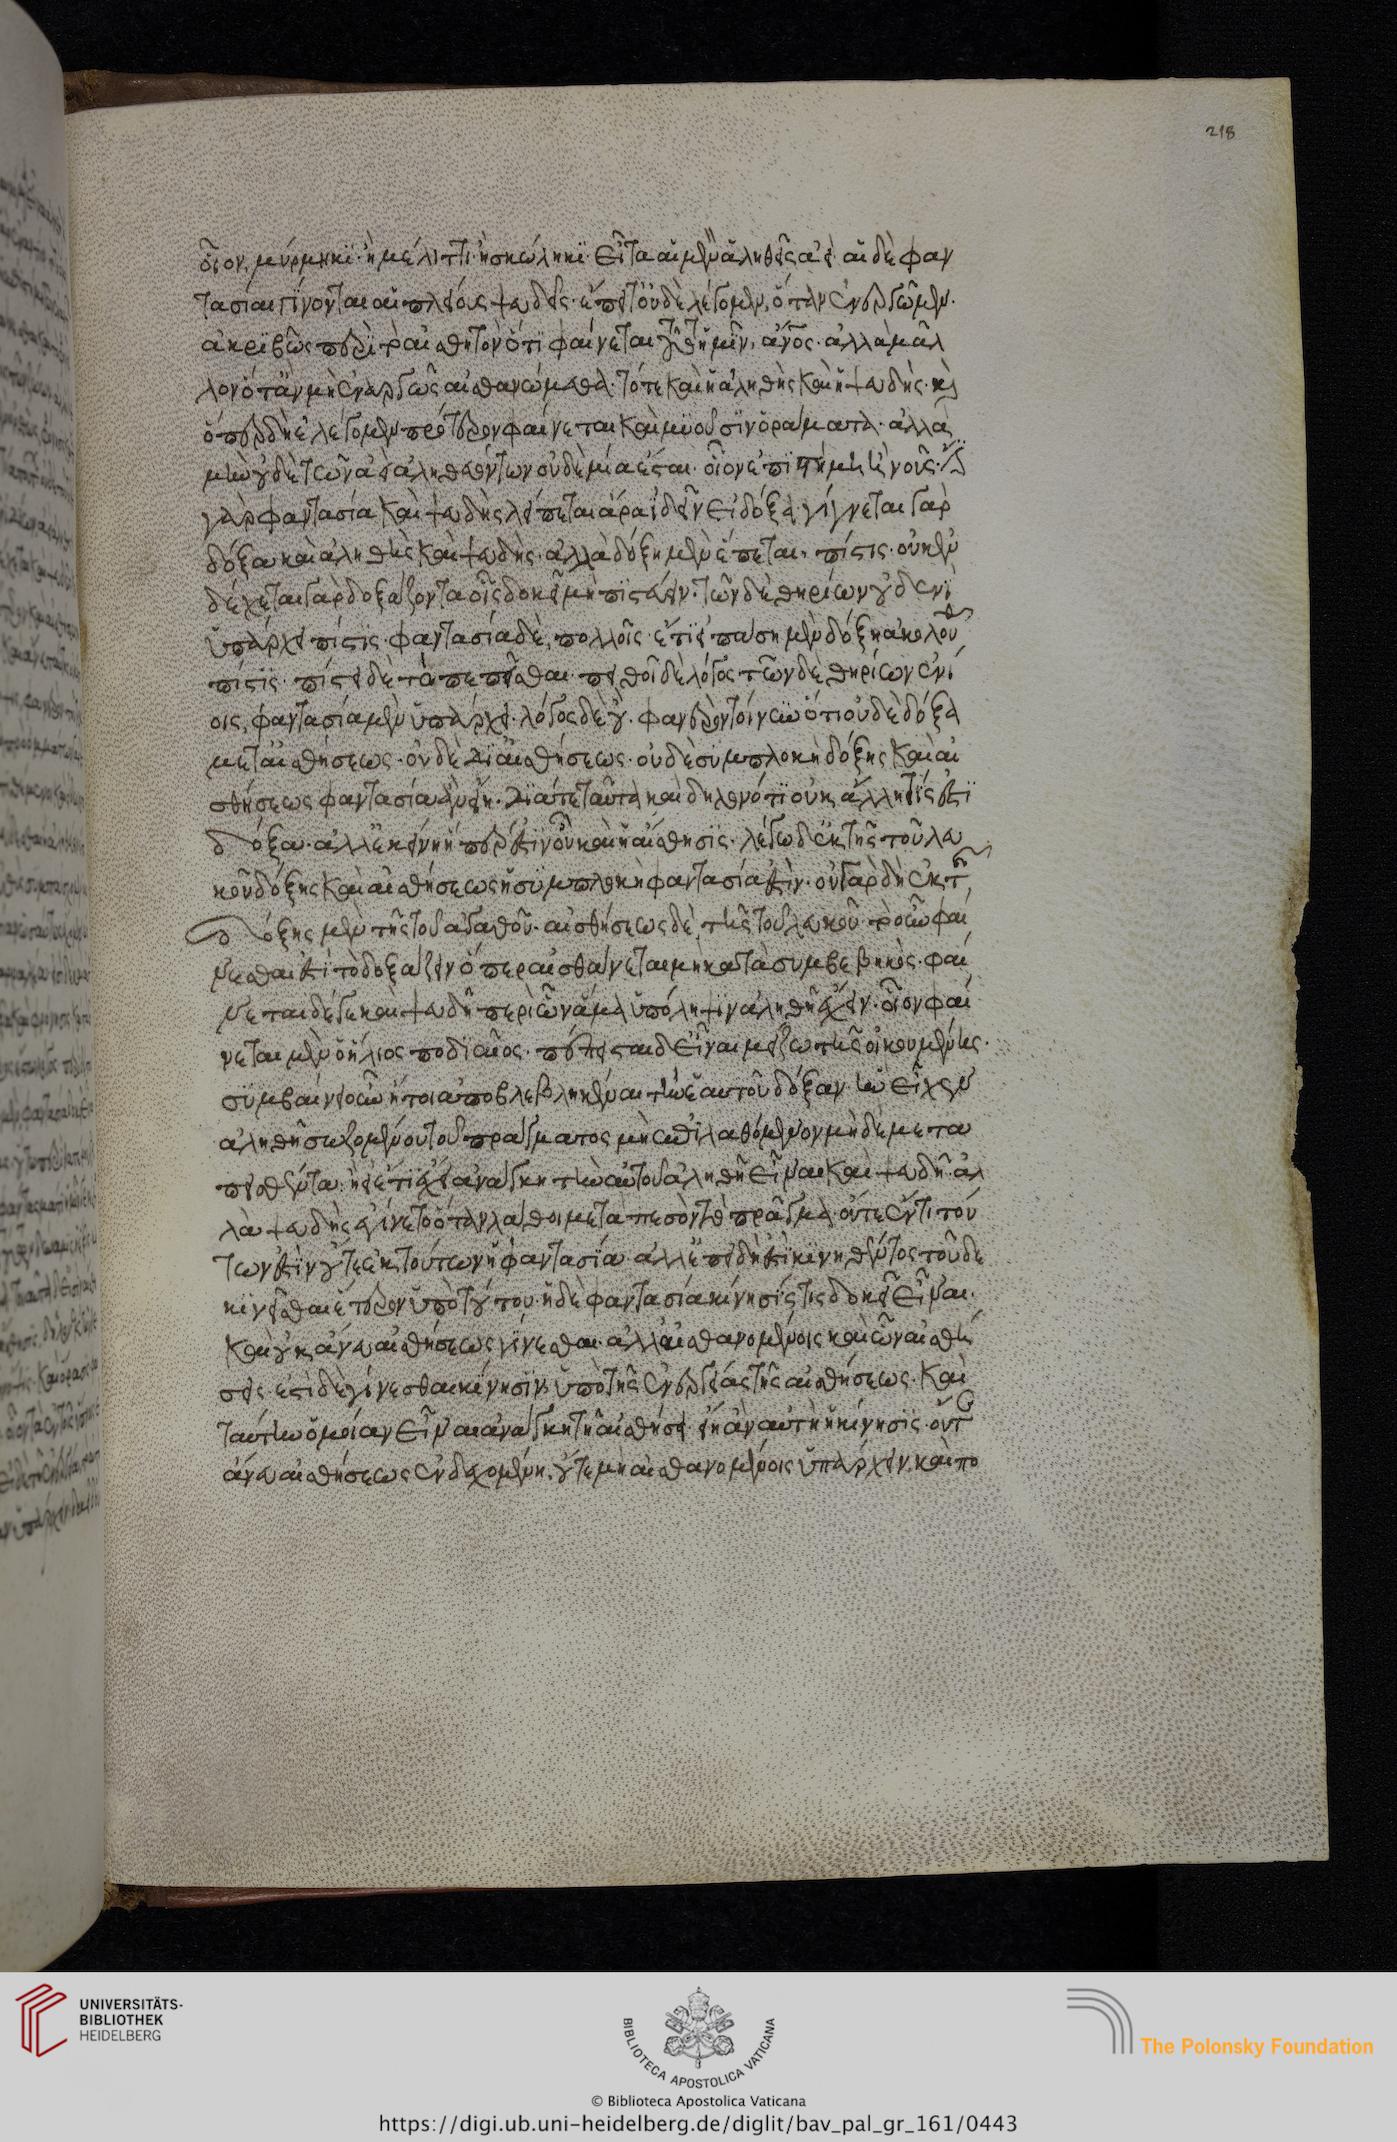 218
οἷον μύρμηκι ἢ μελίττη ἢ σκώληκι· εἶτα αἱ μὲν ἀληθεῖς ἀεί· αἱ δὲ φαν
τασίαι γίνονται αἱ πλείους ψευδεῖς· ἔπειτ' οὐδὲ λέγομεν, ὅταν ἐνεργῶμεν
ἀκριβῶς περὶ τὸ αἰσθητὸν ὅτι φαίνεται τοῦτο ἡμῖν ἄνος· ἀλλὰ μᾶλ
λον ὅταν μὴ ἐναργῶς αἰσθανώμεθα· τότε καὶ ἢ ἀληθὴς καὶ ἢ ψευδής· καὶ
ὅπερ δὴ ἐλέγομεν πρότερον φαίνεται καὶ μύουσιν ὁράματα· ἀλλὰ
μὴν οὐδὲ τῶν ἀεὶ ἀληθευόντων οὐδεμία ἔσται· οἷον ἐπιστήμη ἢ νοῦς· ἔστι
γὰρ φαντασία καὶ ψευδὴς λείπεται ἄρα ἰδεῖν εἰ δόξα γίγνεται γὰρ
δόξα καὶ ἀληθὴς καὶ ψευδής· ἀλλὰ δόξη μὲν ἕπεται πίστις· οὐκ ἐν
δέχεται γὰρ δοξάζοντα οἷς δοκεῖ μὴ πιστεύειν· τῶν δὲ θηρίων οὐδενὶ
ὑπάρχει πίστις φαντασία δὲ πολλοῖς· ἔτι εἰ πάση μὲν δόξη ἀκολουθ
πίστις· πίστει δὲ τὸ πεπεῖσθαι· πειθοῖ δὲ λόγος τῶν δὲ θηρίων ἐνί
οις, φαντασία μὲν ὑπάρχει· λόγος δὲ οὔ· φανερὸν τοίνυν ὅτι οὐδὲ δόξα
μετ' αἰσθήσεως· οὐδὲ δι' αἰσθήσεως· οὐδὲ συμπλοκὴ δόξης καὶ αἰ
σθήσεως φαντασία ἂν εἴη· διά τε ταῦτα καὶ δῆλον ὅτι οὐκ ἄλλη τίς ἐστι
δόξα· ἀλλ' ἐκείνη ἥπερ ἐστὶν οὗ καὶ ἡ αἴσθησις· λέγω δ' ἐκ τῆς τοῦ λευ
κοῦ δόξης καὶ αἰσθήσεως ἡ συμπλοκὴ φαντασία ἐστίν· οὐ γὰρ δὴ ἐκ τ
δόξης μὲν τῆς τοῦ ἀγαθοῦ· αἰσθήσεως δὲ τῆς τοῦ λευκοῦ· τὸ οὖν φαί
νεσθαι ἐστὶ τὸ δοξάζειν ὅπερ αἰσθάνεται μὴ κατὰ συμβεβηκός· φαί
νεται δέ γε καὶ ψευδῆ περὶ ὧν ἅμα ὑπόληψιν ἀληθῆ ἔχειν· οἷον φαί
νεται μὲν ὁ ἥλιος ποδιαῖος· πέπεισται δ' εἶναι μείζω τῆς οἰκουμένης·
συμβαίνει οὖν ἤτοι ἀποβεβληκέναι τὴν ἑαυτοῦ δόξαν ἣν εἶχεν
ἀληθῆ σωζομένου τοῦ πράγματος μὴ ἐπιλαθόμενον μηδὲ μετα
πεισθέντα· ἢ εἰ ἔτι ἔχει ἀνάγκη τὴν αὐτοῦ ἀληθῆ εἶναι καὶ ψευδῆ· ἀλ
λὰ ψευδὴς ἐγίνετο ὅταν λάθοι μεταπεσὸν τὸ πρᾶγμα· οὔτε ἕν τι τού
των ἐστὶν οὔτε ἐκ τούτων ἡ φαντασία· ἀλλ' ἐπειδή ἐστι κινηθέντος τοῦ δε
κινεῖσθαι ἕτερον ὑπὸ τούτου· ἡ δὲ φαντασία κίνησίς τις δοκεῖ εἶναι·
καὶ οὐκ ἄνευ αἰσθήσεως γίνεσθαι· ἀλλ' αἰσθανομένοις καὶ ὧν αἴσθη
σις· ἔστι δὲ γίνεσθαι κίνησιν ὑπὸ τῆς ἐνεργείας τῆς αἰσθήσεως· καὶ
ταύτην ὁμοίαν εἶναι ἀνάγκη τῆ αἰσθήσει· εἴη ἂν αὐτὴ ἡ κίνησις· οὔτ
ἄνευ αἰσθήσεως ἐνδεχομένη, οὔτε μὴ αἰσθανομένοις ὑπάρχειν, καὶ πο
UNIVERSITÄTS-
BIBLIOTHEK
HEIDELBERG
BIBLIOTECA APOSTOLICA VATICANA
The Polonsky Foundation
© Biblioteca Apostolica Vaticana
https://digi.ub.uni-heidelberg.de/diglit/bav_pal_gr_161/0443